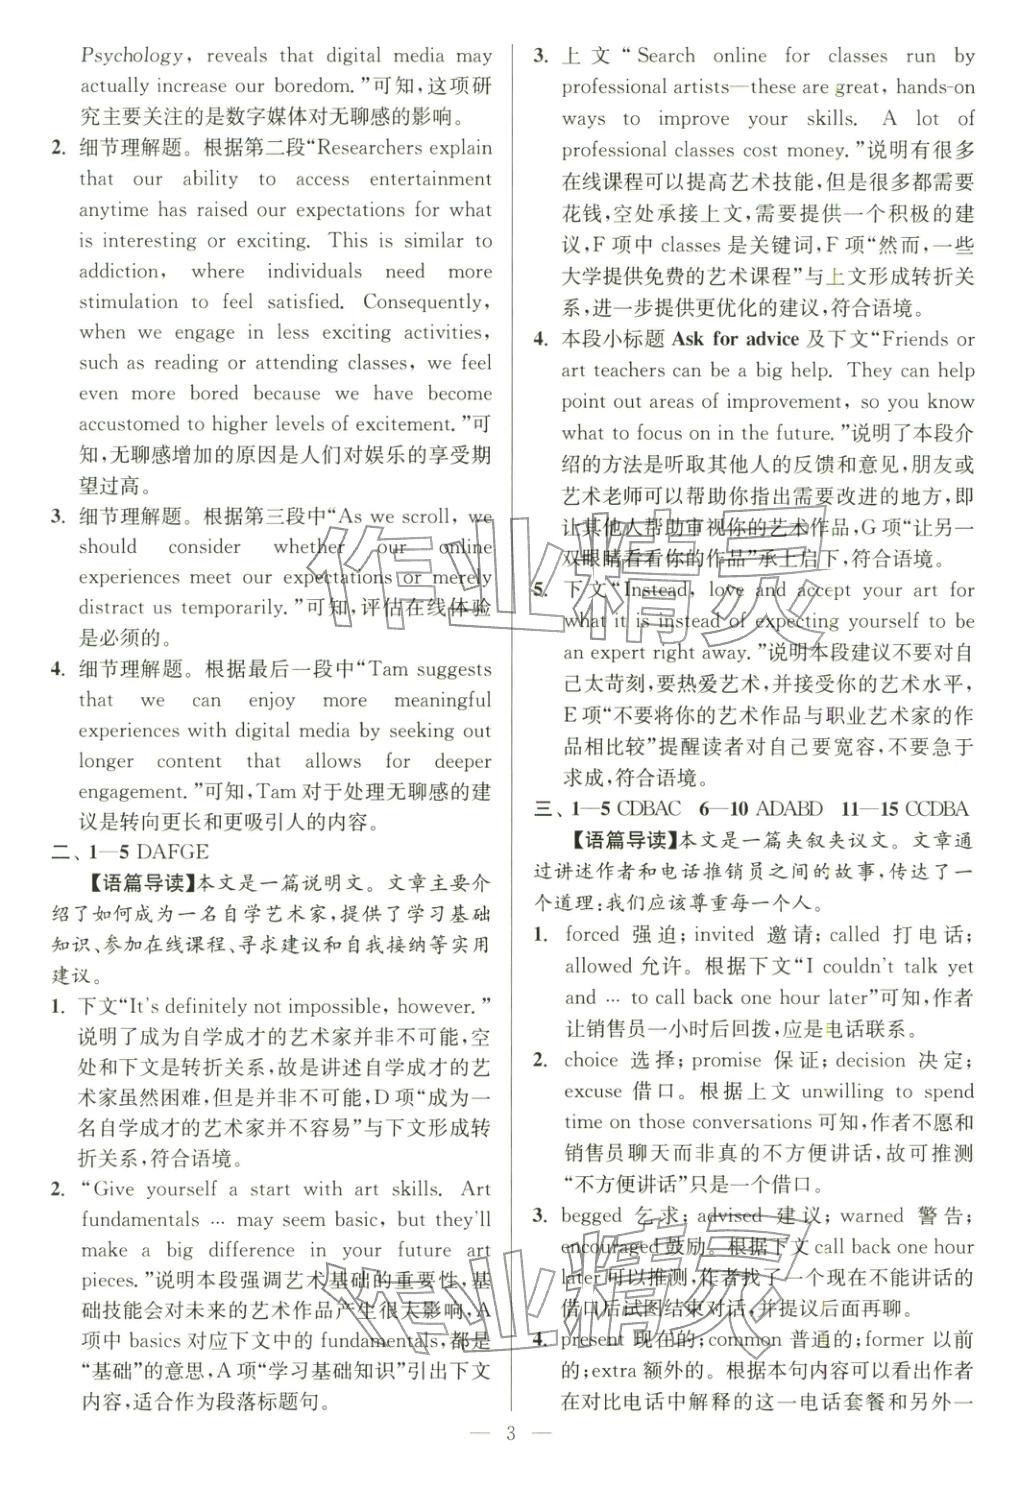 Psychology, reveals that digital media may
actually increase our boredom.”可知,这项研
究主要关注的是数字媒体对无聊感的影响。
2. 细节理解题。根据第二段“Researchers explain
that our ability to access entertainment
anytime has raised our expectations for what
is interesting or exciting. This is similar to
addiction, where individuals need more
stimulation to feel satisfied. Consequently,
when we engage in less exciting activities,
such as reading or attending classes, we feel
even more bored because we have become
accustomed to higher levels of excitement.”可
知,无聊感增加的原因是人们对娱乐的享受期
望过高。
3. 细节理解题。根据第三段中“As we scroll, we
should consider whether our online
experiences meet our expectations or merely
distract us temporarily.”可知,评估在线体验
是必须的。
4. 细节理解题。根据最后一段中“Tam suggests
that we can enjoy more meaningful
experiences with digital media by seeking out
longer content that allows for deeper
engagement.”可知,Tam 对于处理无聊感的建
议是转向更长和更吸引人的内容。
二、1—5 DAFGE
【语篇导读】本文是一篇说明文。文章主要介
绍了如何成为一名自学艺术家,提供了学习基础
知识、参加在线课程、寻求建议和自我接纳等实用
建议。
1. 下文“It's definitely not impossible, however.”
说明了成为自学成才的艺术家并非不可能,空
处和下文是转折关系,故是讲述自学成才的艺
术家虽然困难,但是并非不可能,D 项“成为一
名自学成才的艺术家并不容易”与下文形成转
折关系,符合语境。
2. “Give yourself a start with art skills. Art
fundamentals … may seem basic, but they'll
make a big difference in your future art
pieces.”说明本段强调艺术基础的重要性,基
础技能会对未来的艺术作品产生很大影响,A
项中 basics 对应下文中的 fundamentals,都是
“基础”的意思,A 项“学习基础知识”引出下文
内容,适合作为段落标题句。
3. 上文“Search online for classes run by
professional artists—these are great, hands-on
ways to improve your skills. A lot of
professional classes cost money.”说明有很多
在线课程可以提高艺术技能,但是很多都需要
花钱,空处承接上文,需要提供一个积极的建
议,F 项中 classes 是关键词,F 项“然而,一些
大学提供免费的艺术课程”与上文形成转折关
系,进一步提供更优化的建议,符合语境。
4. 本段小标题 Ask for advice 及下文“Friends or
art teachers can be a big help. They can help
point out areas of improvement, so you know
what to focus on in the future.”说明了本段介
绍的方法是听取其他人的反馈和意见,朋友或
艺术老师可以帮助你指出需要改进的地方,即
让其他人帮助审视你的艺术作品,G 项“让另一
双眼睛看看你的作品”承上启下,符合语境。
5. 下文“Instead, love and accept your art for
what it is instead of expecting yourself to be
an expert right away.”说明本段建议不要对自
己太苛刻,要热爱艺术,并接受你的艺术水平,
E 项“不要将你的艺术作品与职业艺术家的作
品相比较”提醒读者对自己要宽容,不要急于
求成,符合语境。
三、1—5 CDBAC 6—10 ADABD 11—15 CCDBA
【语篇导读】本文是一篇夹叙夹议文。文章通
过讲述作者和电话推销员之间的故事,传达了一
个道理:我们应该尊重每一个人。
1. forced 强迫;invited 邀请;called 打电话;
allowed 允许。根据下文“I couldn't talk yet
and … to call back one hour later”可知,作者
让销售员一小时后回拨,应是电话联系。
2. choice 选择;promise 保证;decision 决定;
excuse 借口。根据上文 unwilling to spend
time on those conversations 可知,作者不愿和
销售员聊天而非真的不方便讲话,故可推测
“不方便讲话”只是一个借口。
3. begged 乞求;advised 建议;warned 警告;
encouraged 鼓励。根据下文 call back one hour
later 可以推测,作者找了一个现在不能讲话的
借口后试图结束对话,并提议后面再聊。
4. present 现在的;common 普通的;former 以前
的;extra 额外的。根据本句内容可以看出作者
在对比电话中解释的这一电话套餐和另外一
— 3 —
作业精灵
作业精灵